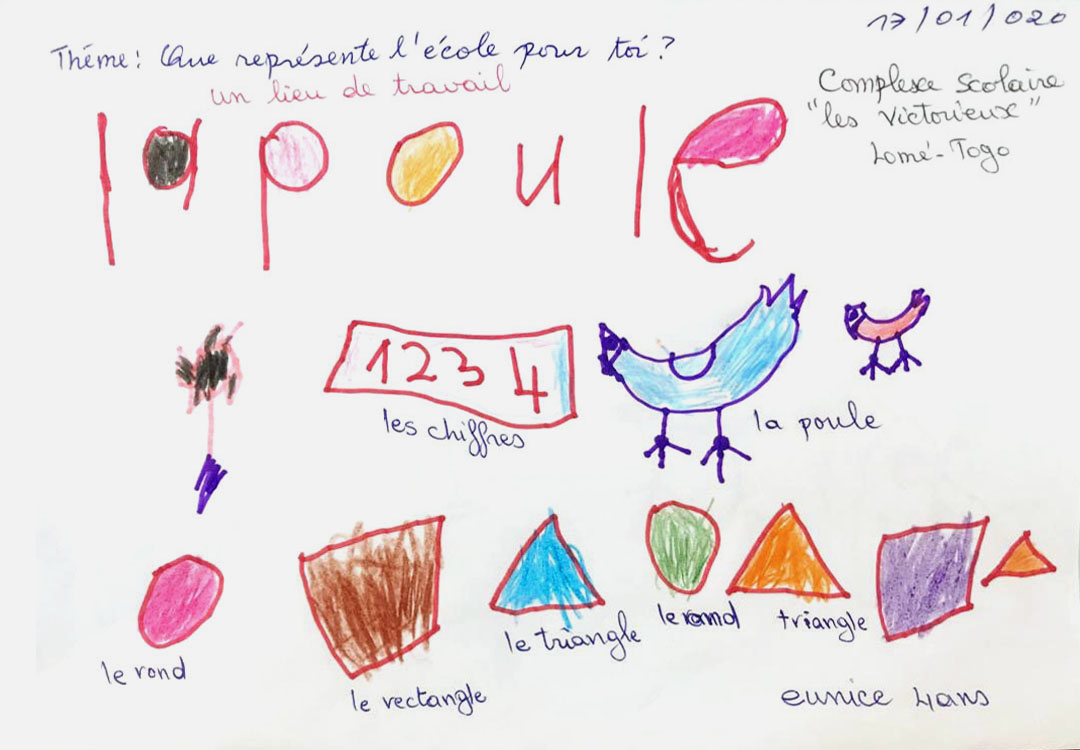 17/01/020
Théme: Que représente l'école pour toi ?
un lieu de travail
Complexe scolaire
"les victorieux"
Lomé-Togo
la poule
1 2 3 4
les chiffres
la poule
le rond
le rectangle
le triangle
le rond
triangle
eunice 4ans